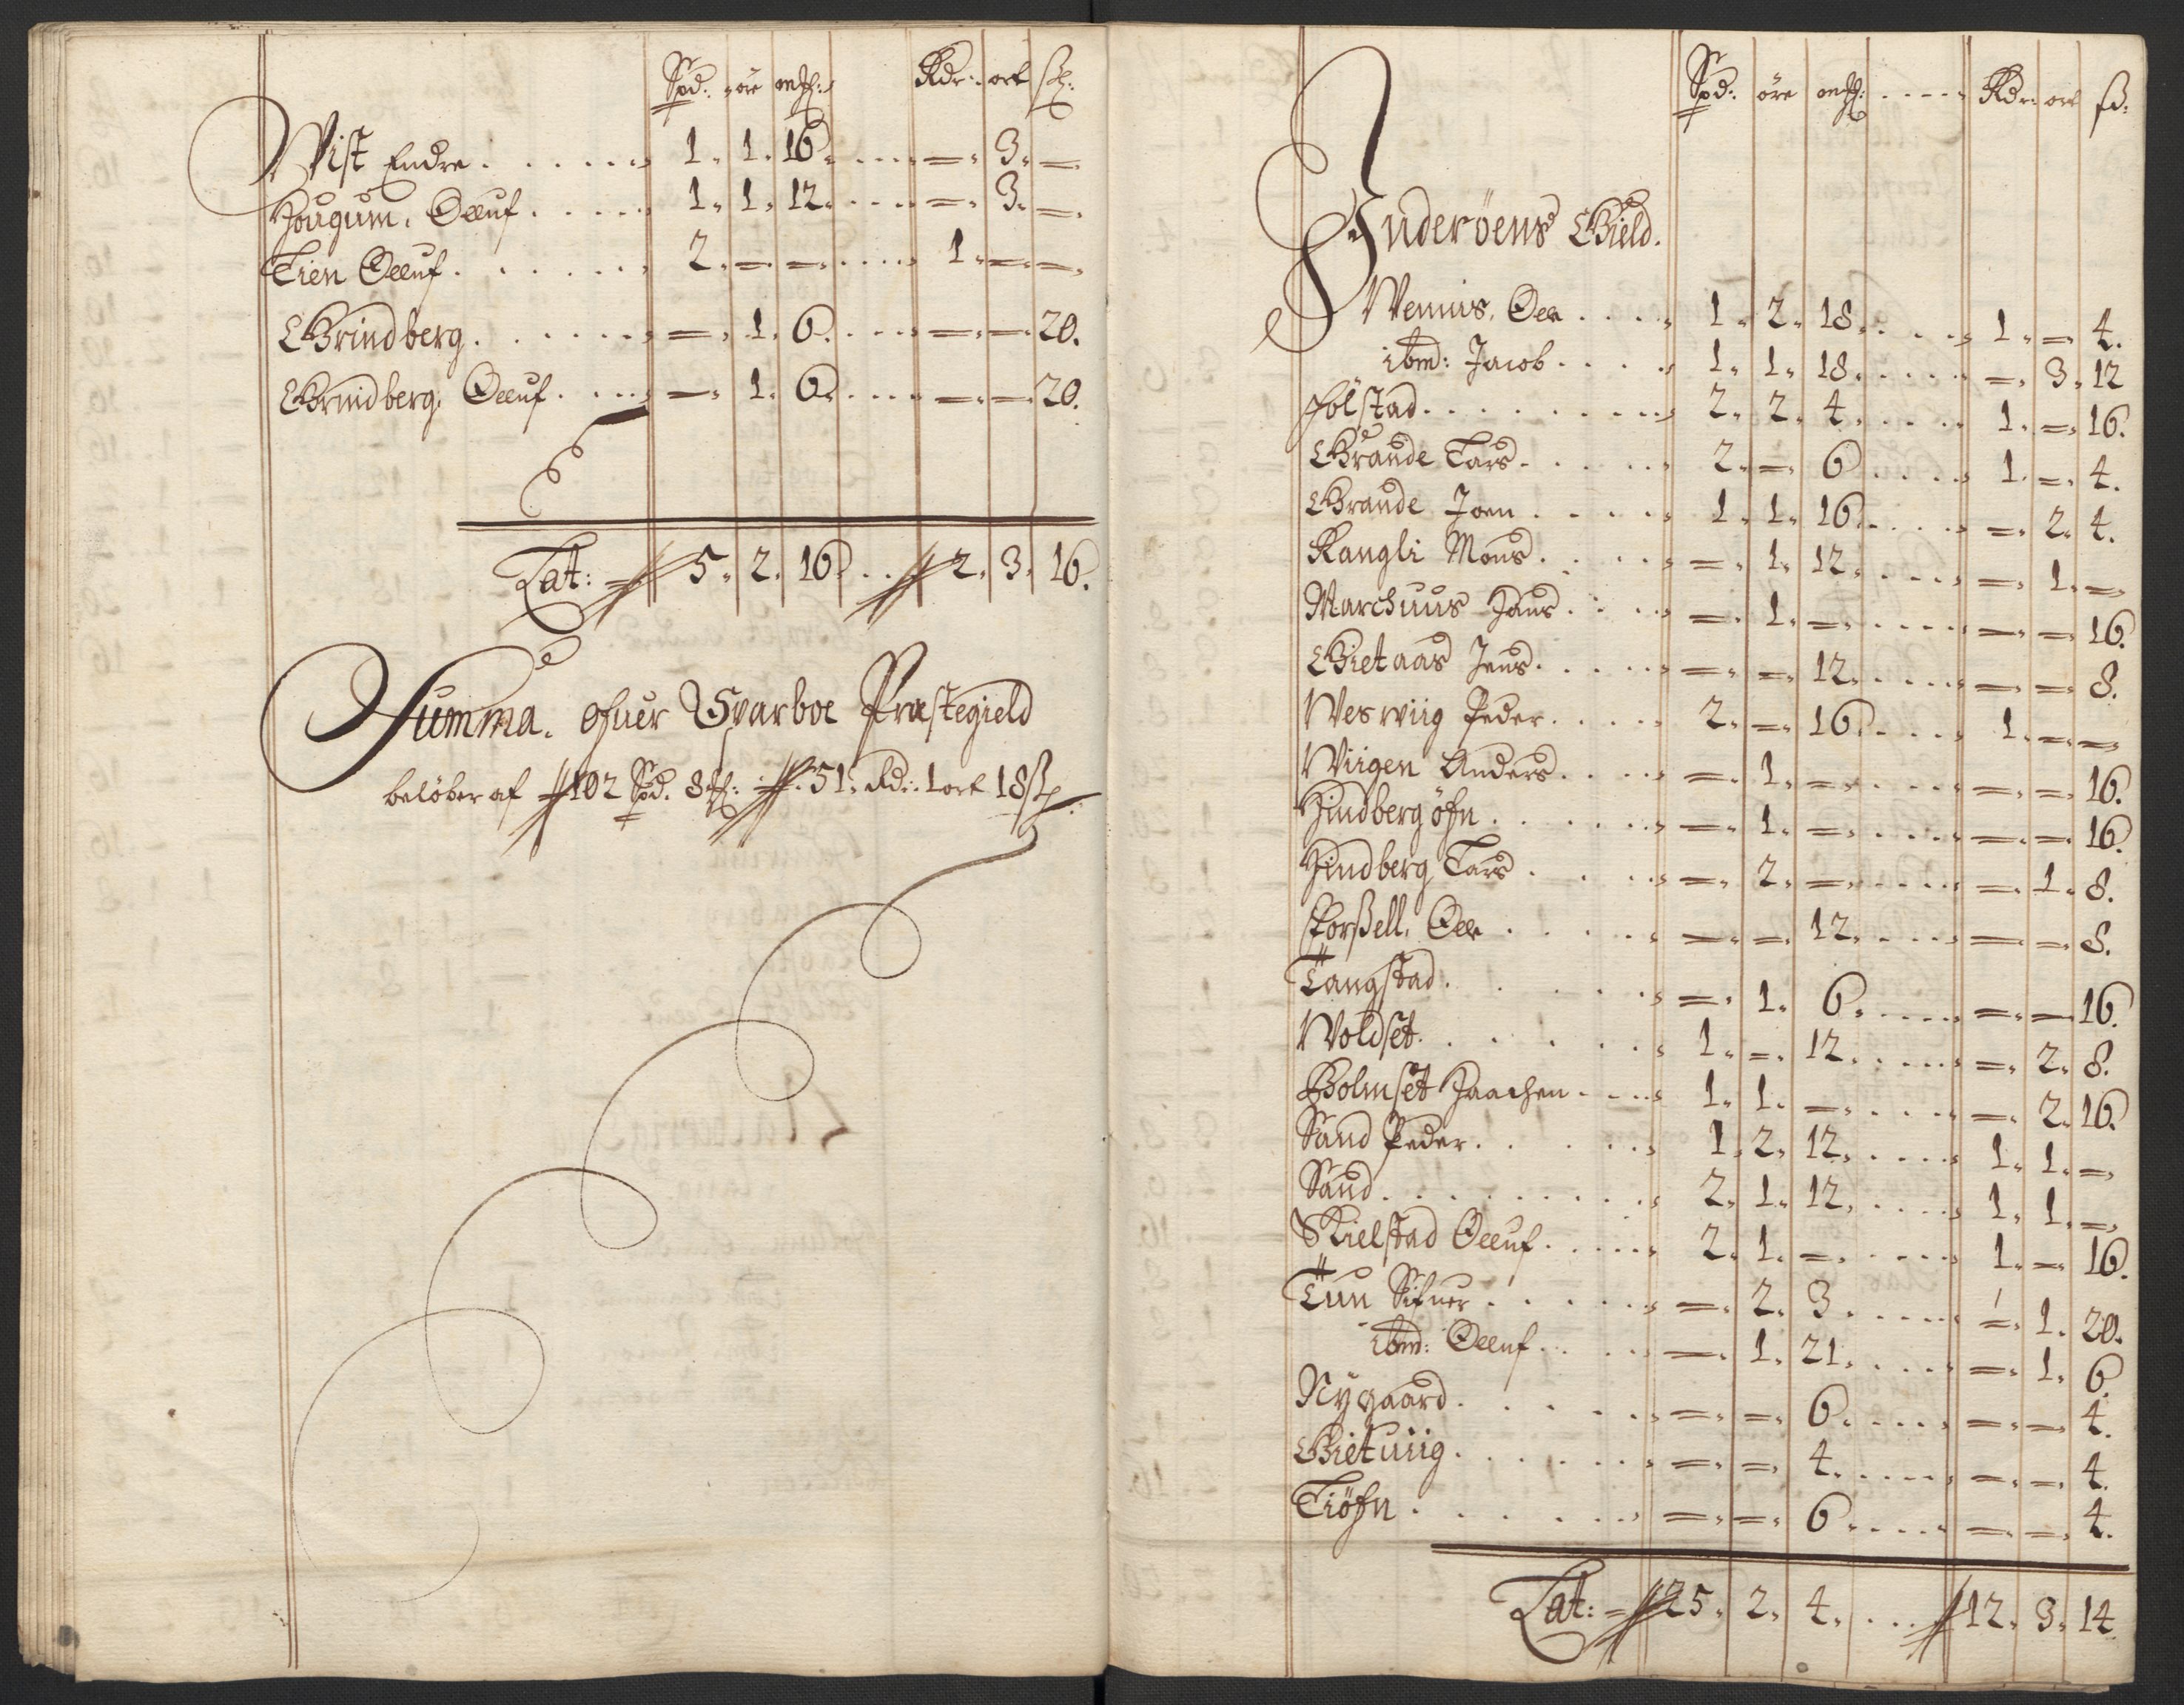 Spd: öre mk: Rdr: ort ß:
Wist Endre . . . . . 1. 1. 16. . . . =. 3. =.
Hougum. Oeluf . . . . 1. 1. 12. . . . =. 3. =.
Tien Oeluf . . . . . 2. =. =. . . . 1. =. =.
Grindberg . . . . . =. 1. 6. . . . =. =. 20.
Grindberg. Oeluf . . . . =. 1. 6. . . . =. =. 20.
Lat: 5. 2. 16. . . 2. 3. 16.
Summa. ofuer Sparboe Præstegield
beløber af 102 Spd. 8 mk: 51. Rd: 1 ort 18 ß
Spd: öre mk: . . . . Rdr: ort ß:
Inderöens Gield.
Wennis. Ole . . . . 1. 2. 18. . . . 1. =. 4.
ibm: Jacob . . . . 1. 1. 18. . . . =. 3. 12
Fölstad . . . . . . 2. 2. 4. . . . 1. =. 16.
Grande Lars . . . . 2. =. 6. . . . 1. =. 4.
Grande Joen . . . . 1. 1. 16. . . . =. 2. 4.
Rangli Mons . . . . =. 1. 12. . . . =. 1. =.
Marchuus Hans . . . . =. 1. =. . . . =. =. 16.
Gietaas Jens . . . . =. =. 12. . . . =. =. 8.
Weswiig Peder . . . . 2. =. 16. . . . 1. =. =.
Wiigen Anders . . . . =. 1. =. . . . =. =. 16.
Hindberg öfn . . . . =. 1. =. . . . =. =. 16.
Hindberg Lars . . . . =. 2. =. . . . =. 1. 8.
Korßell. Ole . . . . =. =. 12. . . . =. =. 8.
Langstad . . . . . =. 1. 6. . . . =. =. 16.
Woldset . . . . . 1. =. 12. . . . =. 2. 8.
Bolmset Haachen . . . . 1. 1. =. . . . =. 2. 16.
Sand Peder . . . . 1. 2. 12. . . . 1. 1. =.
Sand . . . . . . 2. 1. 12. . . . 1. 1. =.
Skielstad Oeluf . . . . 2. 1. =. . . . 1. =. 16.
Tun Sifuer . . . . =. 2. 3. . . . =. 1. 20.
ibm: Oeluf . . . . =. 1. 21. . . . =. 1. 6.
Nygaard . . . . . =. =. 6. . . . =. =. 4.
Gietuiig . . . . . =. =. 4. . . . =. =. 4.
Tiöfn . . . . . =. =. 6. . . . =. =. 4.
Lat: 25. 2. 4. . . . 12. 3. 14